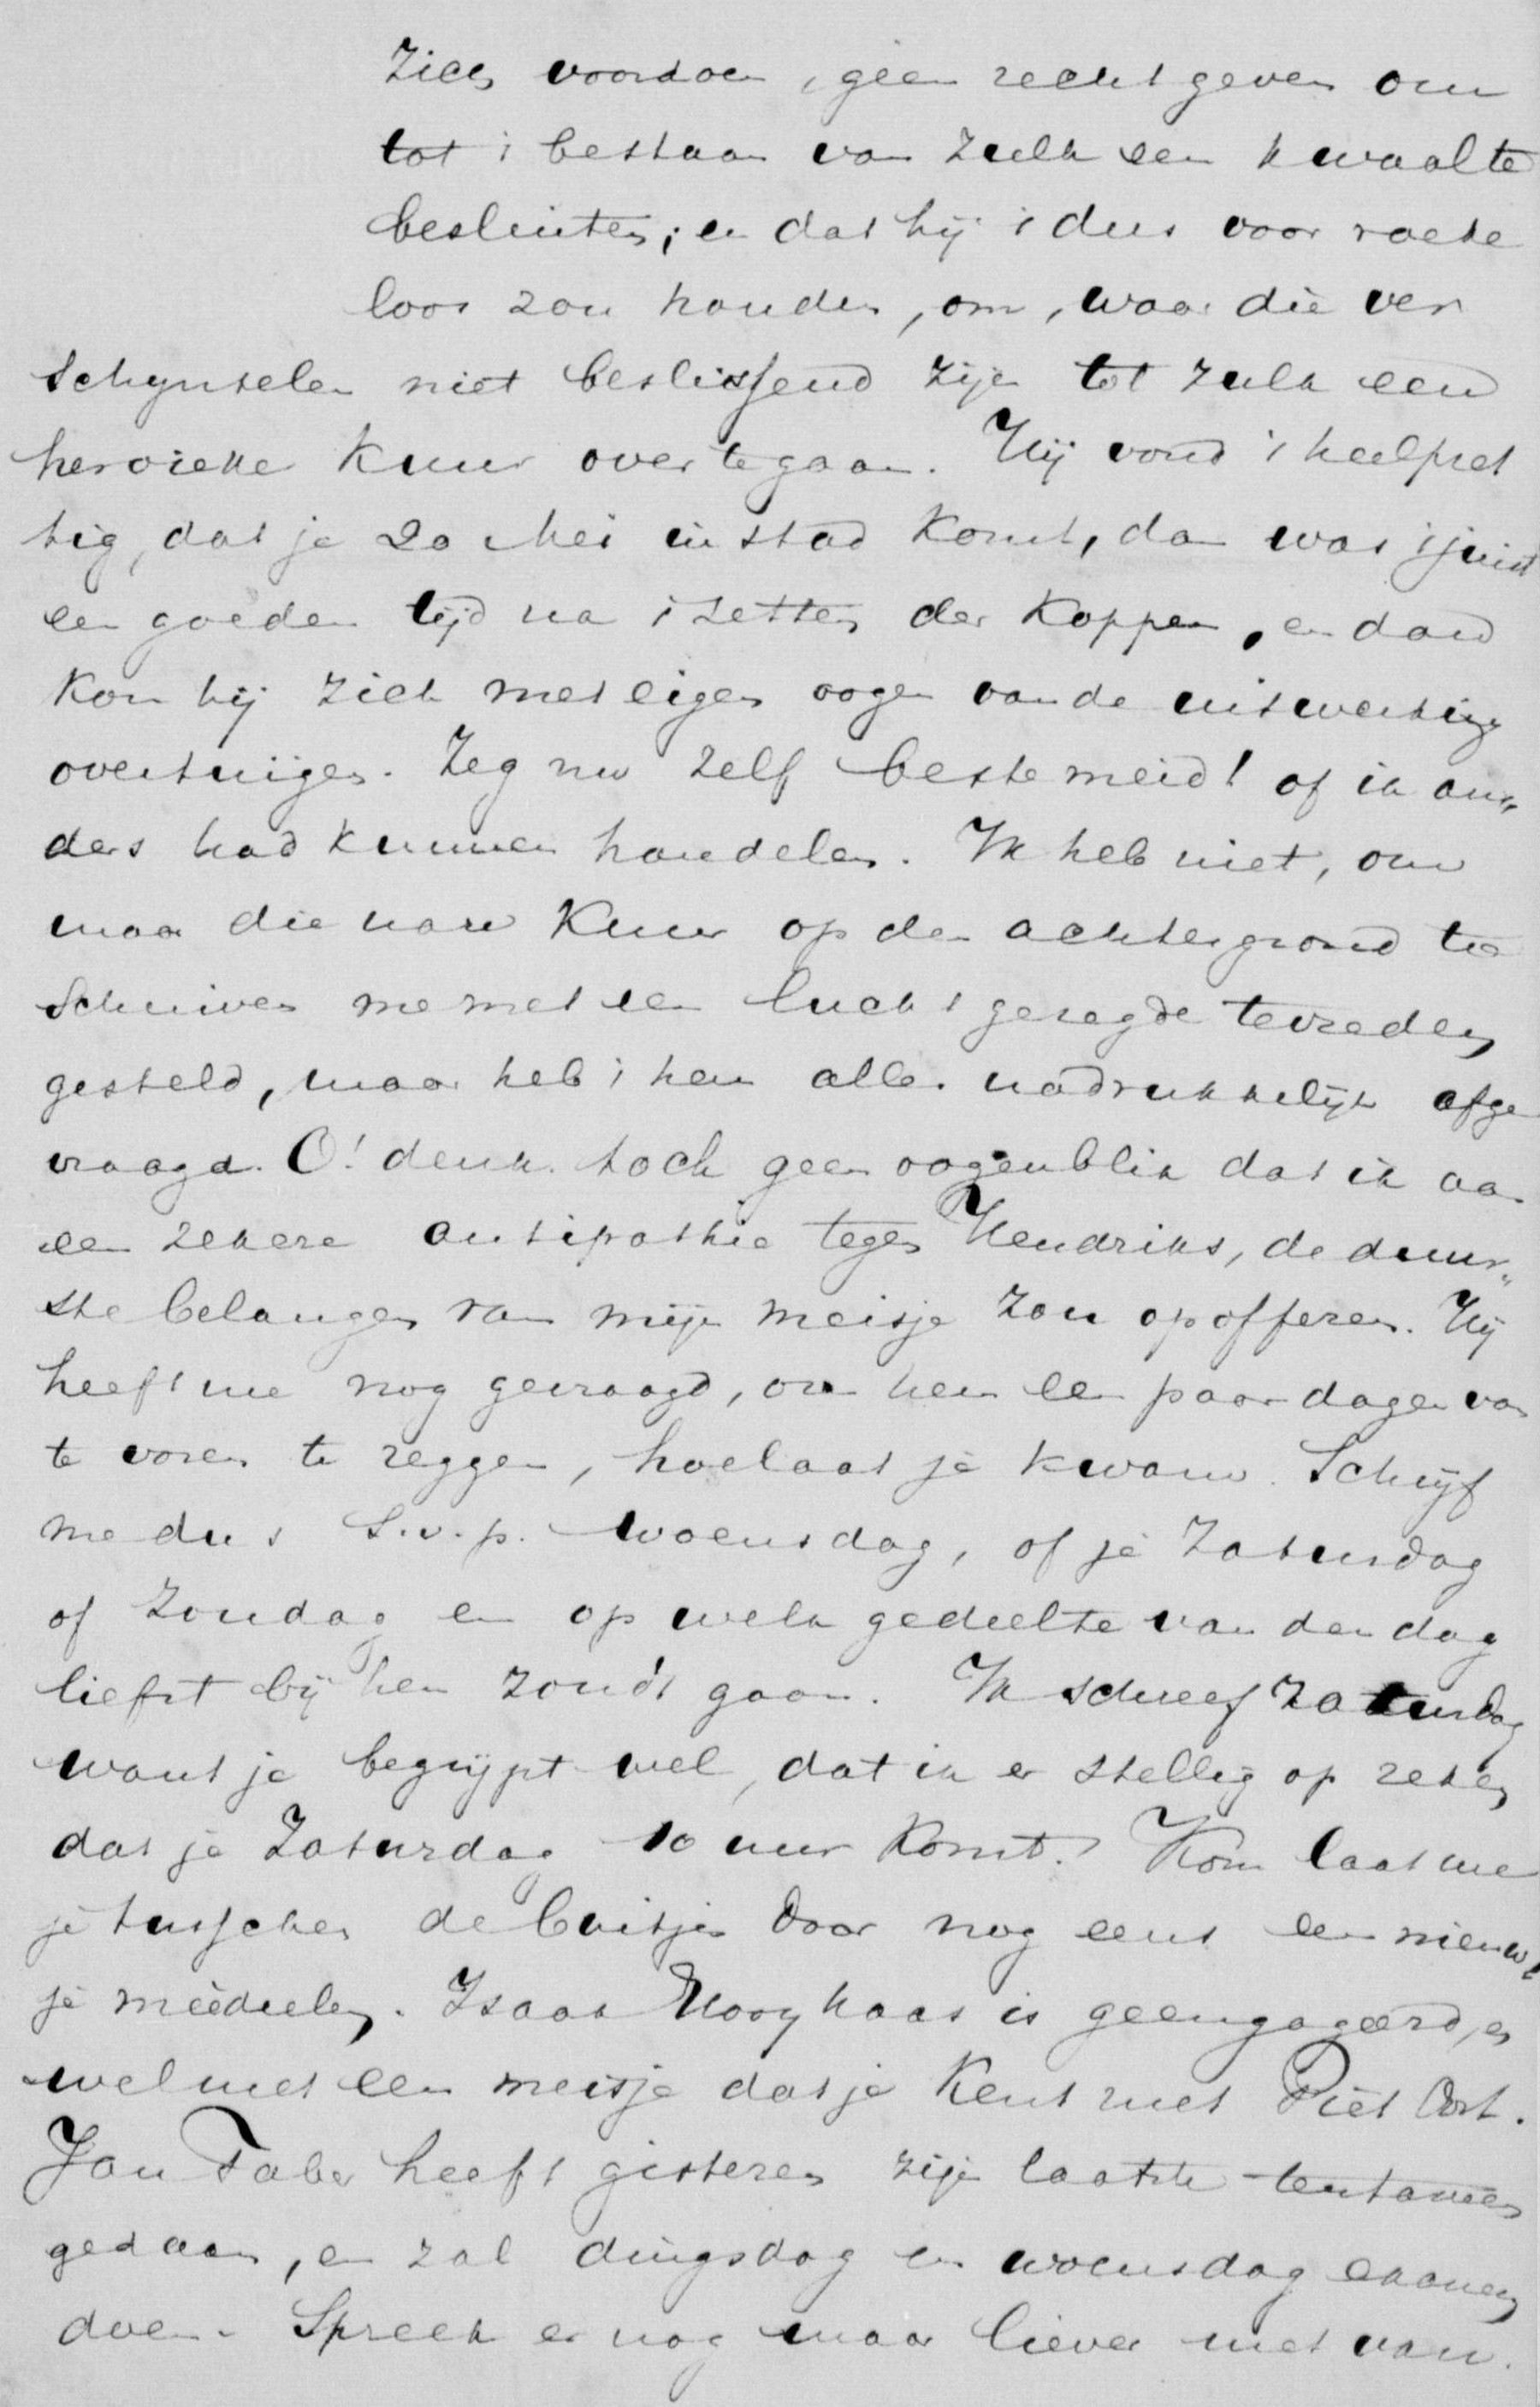 zich voordoen, geen recht geven om
tot 't bestaan van zulk een kwaal te
besluiten; en dat hij 't dus voor roeke
loos zou houden, om, waar die ver
schynselen niet beslissend zijn tot zulk een
heroieke kuur overtegaan. Hij vond 't heel pret
tig, dat je 20 Mei in stad komt, dan was 't juist
een goeden tijd na 't zetten der koppen, en dan
kon hij zich met eigen oogen van de uitwerking
overtuigen. Zeg nu zelf beste meid! of ik an„
ders had kunnen handelen. Ik heb niet, om
maar die nare kuur op den achtergrond te
schuiven me met een lucht gezegde tevreden
gesteld, maar heb 't hem alles nadrukkelijk afge
vraagd. O! denk toch geen oogenblik dat ik aan
een zekere antipathie tegen Hendriks, de duur„
ste belangen van mijn meisje zou opofferen. Hij
heeft me nog gevraagd, om hem een paar dagen van
te voren te zeggen, hoelaat je kwam. Schrijf
me dus s.v.p. woensdag, of je Zaturdag
of Zondag en op welk gedeelte van den dag
liefst bij hem zoudt gaan. Ik schreef Zaturdag
want je begrijpt wel, dat ik er stellig op reken
dat je Zaturdag 10 uur komt! Kom laat me
je tusschen de buitjes door nog eens een nieuwt
je meêdeelen. Isaac Hooykaas is geengageerd, en
wel met een meisje dat je kent met Piet Oort.
Jan Faber heeft gisteren zijn laatste tentamen
gedaan, en zal dingsdag en woensdag examen
doen. Spreek er nog maar liever niet van.